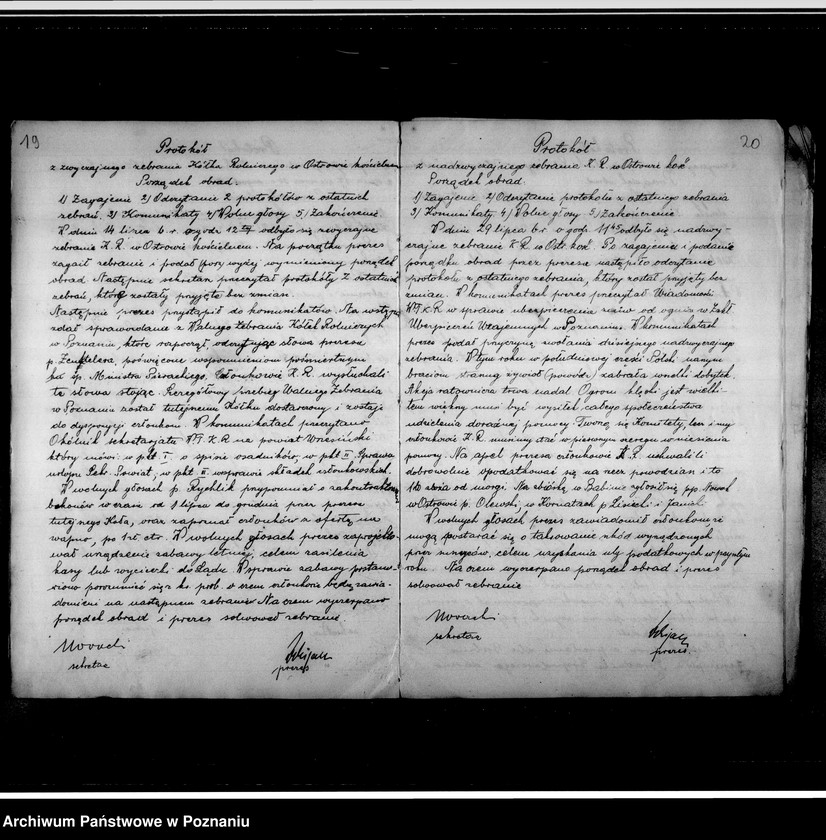 19
Protokół
z zwyczajnego zebrania Kółka Rolniczego w Ostrowie kościelnem
Porządek obrad.
1) Zagajenie 2) Odczytanie 2 protokółów z ostatnich
zebrań, 3) Komunikaty 4) Wolne głosy 5) Zakończenie.
W dniu 14 lipca b.r. o godz 12 odbyło się zwyczajne
zebranie K. R. w Ostrowie kościelnem. Na początku prezes
zagaił zebranie i podał wyżej wymieniony porządek
obrad. Następnie sekretarz przeczytał protokóły z ostatnich
zebrań, które zostały przyjęte bez zmian.
Następnie prezes przystąpił do komunikatów. Na wstępie
zdał sprawozdanie z Walnego Zebrania Kółek Rolniczych
w Poznaniu, które rozpoczął, odczytując słowa prezesa
p. poświęcone wspomnieniom pośmiertnym
ku śp. Ministra Pierackiego. Członkowie K. R. wysłuchali
te słowa stojąc. Szczegółowy przebieg Walnego Zebrania
w Poznaniu został tutejszemu Kółku dostarczony i zostaje
do dyspozycji członków. W komunikatach przeczytano
Okólnik sekretarjatu WT.K.R na powiat Wrzesiński
który mówi: w pkt. I o spisie osadników, w pkt II. Sprawa
urlopu Sekr. Powiat, w pkt. III. w sprawie składek członkowskich.
W wolnych głosach p. Rychlik przypomniał o zakontraktow.
bekonów w czasie od 1 lipca do grudnia przez prezesa
tutejszego Koła, oraz zapoznał członków z ofertą na
wapno, po 1 zł ctr. W wolnych głosach prezes zapropono-
wał urządzenie zabawy letniej, celem zasilenia
kasy lub wycieczki do Lądu. W sprawie zabawy postano-
wiono porozumieć się z ks. prob. o czem członkowie będą zawia-
domieni na następnem zebraniu. Na czem wyczerpano
porządek obrad i prezes solwował zebranie.
Nowacki
sekretarz
prezes
20
Protokół
z nadzwyczajnego zebrania K. R. w Ostrowie koś
Porządek obrad.
1) Zagajenie 2) Odczytanie protokołu z ostatniego zebrania
3) Komunikaty 4) Wolne głosy 5) Zakończenie.
W dniu 29 lipca b.r. o godz. 11 odbyło się nadzwy-
czajne zebranie K. R. w Ostr. koś. Po zagajeniu i podaniu
porządku obrad przez prezesa nastąpiło odczytanie
protokołu z ostatniego zebrania, który został przyjęty bez
zmian. W komunikatach prezes przeczytał Wiadomości
WT.K.R w sprawie ubezpieczenia zbiorów od ognia w Zakł.
Ubezpieczeń Wzajemnych w Poznaniu. W komunikatach
prezes podał przyczynę zwołania dzisiejszego nadzwyczajnego
zebrania. W tym roku w południowej części Polski naszym
braciom straszny żywioł (powódź) zabrała wszelki dobytek.
Akcja ratownicza trwa nadal. Ogrom klęski jest wielki
tem większy musi być wysiłek całego społeczeństwa
udzielenia doraźnej pomocy. Tworzą się Komitety, lecz i my
członkowie K. R. musimy stać w pierwszym szeregu w niesieniu
pomocy. Na apel prezesa członkowie K. R. uchwalili
dobrowolnie opodatkować się na rzecz powodzian i to
zboża od morgi. Na zbiórkę w Babinie zgłosili się pp. Nowak
w Ostrowie p. Olewski, w Kornatach p.
W wolnych głosach prezes zawiadomił członków że
mogą postarać się o taksowanie szkód wyrządzonych
przez celem uzyskania ulg podatkowych w przyszłym
roku. Na czem wyczerpano porządek obrad i prezes
solwował zebranie
Nowacki
sekretarz
prezes
Archiwum Państwowe w Poznaniu